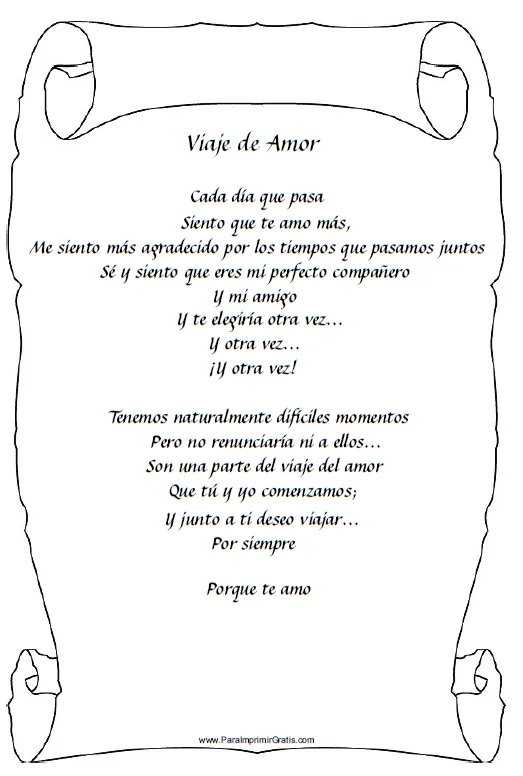 Viaje de Amor
Cada día que pasa
Siento que te amo más,
Me siento más agradecido por los tiempos que pasamos juntos
Sé y siento que eres mi perfecto compañero
Y mi amigo
Y te elegiría otra vez...
Y otra vez...
¡Y otra vez!
Tenemos naturalmente difíciles momentos
Pero no renunciaría ni a ellos...
Son una parte del viaje del amor
Que tú y yo comenzamos;
Y junto a ti deseo viajar...
Por siempre
Porque te amo
www.ParaImprimirGratis.com